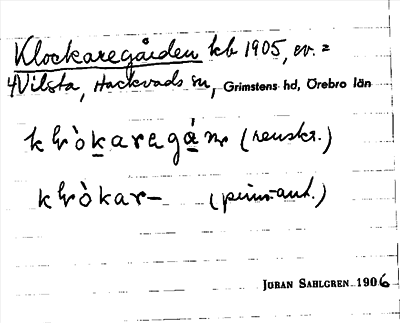 Klockaregården kb 1905, ev. =
4 Vilsta, Hackvads sn, Grimstens hd, Örebro län
klòkaregán (renskr.)
klòkar– (prim-ant.)
JÖRAN SAHLGREN 1906